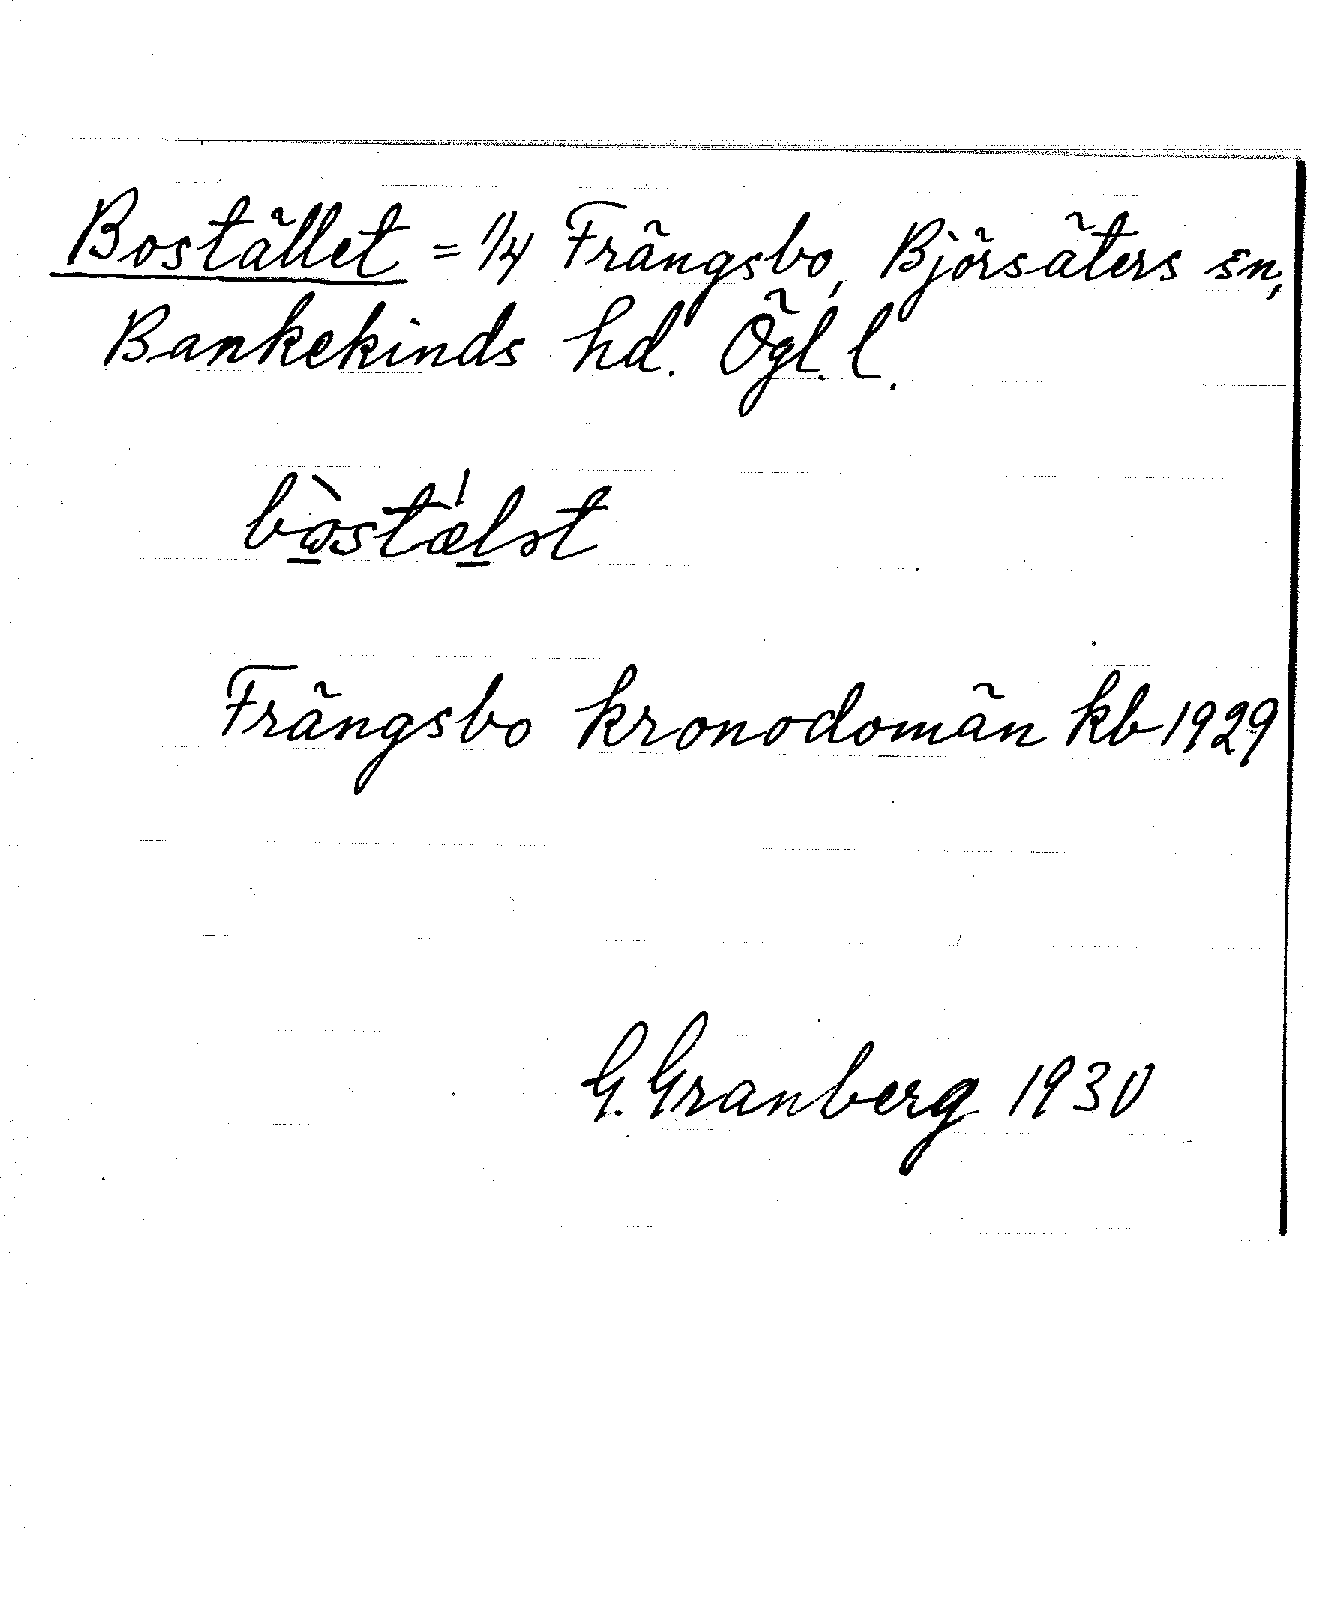 Bostället = 1/4 Frängsbo, Björsäters sn,
Bankekinds hd. Ögl. l.
bòstǽlət
Frängsbo kronodomän kb 1929
G. Granberg 1930